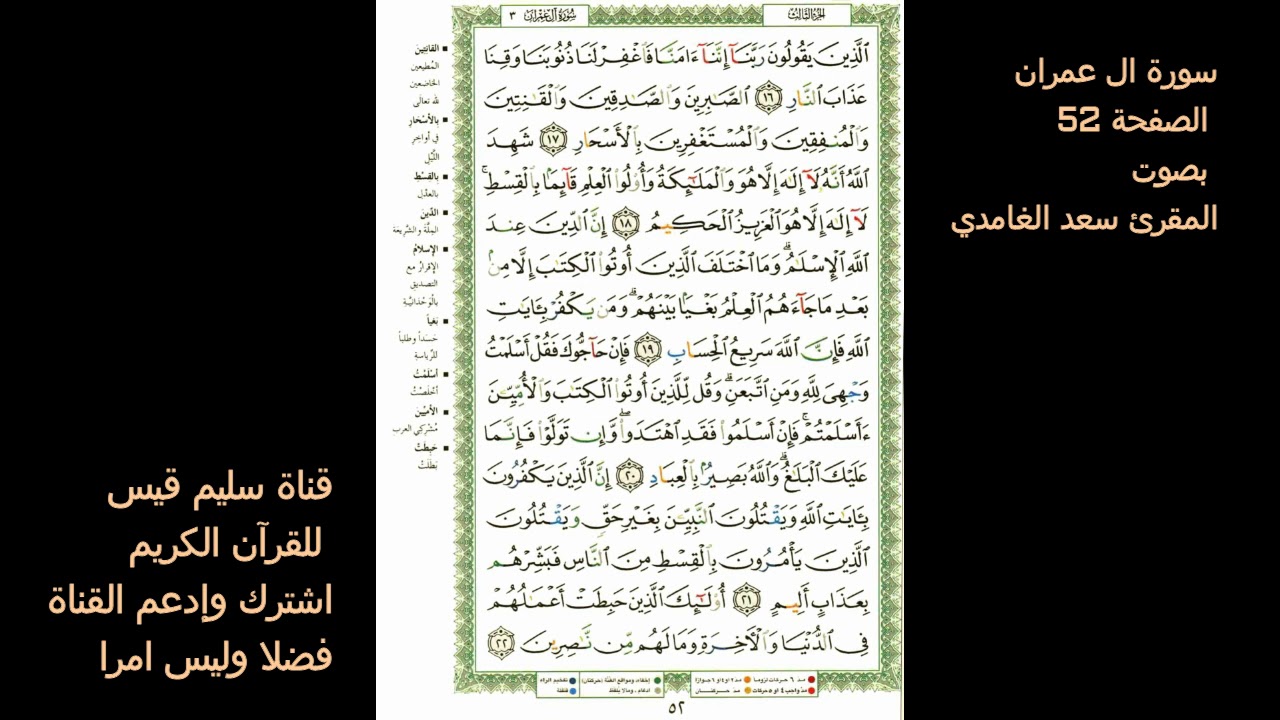 سورة ال عمران
الصفحة 52
بصوت
المقرئ سعد الغامدي
الجزء الثالث
سورة آل عمران ٣
الَّذِينَ يَقُولُونَ رَبَّنَآ إِنَّنَآ ءَامَنَّا فَاغْفِرْ لَنَا ذُنُوبَنَا وَقِنَا
عَذَابَ النَّارِ ١٦ الصَّٰبِرِينَ وَالصَّٰدِقِينَ وَالْقَٰنِتِينَ
وَالْمُنفِقِينَ وَالْمُسْتَغْفِرِينَ بِالْأَسْحَارِ ١٧ شَهِدَ
اللَّهُ أَنَّهُۥ لَآ إِلَٰهَ إِلَّا هُوَ وَالْمَلَٰٓئِكَةُ وَأُو۟لُوا۟ الْعِلْمِ قَآئِمًۢا بِالْقِسْطِ ۚ
لَآ إِلَٰهَ إِلَّا هُوَ الْعَزِيزُ الْحَكِيمُ ١٨ إِنَّ الدِّينَ عِندَ
اللَّهِ الْإِسْلَٰمُ ۗ وَمَا اخْتَلَفَ الَّذِينَ أُوتُوا۟ الْكِتَٰبَ إِلَّا مِنۢ
بَعْدِ مَا جَآءَهُمُ الْعِلْمُ بَغْيًۢا بَيْنَهُمْ ۗ وَمَن يَكْفُرْ بِـَٔايَٰتِ
اللَّهِ فَإِنَّ اللَّهَ سَرِيعُ الْحِسَابِ ١٩ فَإِنْ حَآجُّوكَ فَقُلْ أَسْلَمْتُ
وَجْهِىَ لِلَّهِ وَمَنِ اتَّبَعَنِ ۗ وَقُل لِّلَّذِينَ أُوتُوا۟ الْكِتَٰبَ وَالْأُمِّيِّـۧنَ
ءَأَسْلَمْتُمْ ۚ فَإِنْ أَسْلَمُوا۟ فَقَدِ اهْتَدَوا۟ ۖ وَّإِن تَوَلَّوْا۟ فَإِنَّمَا
عَلَيْكَ الْبَلَٰغُ ۗ وَاللَّهُ بَصِيرٌۢ بِالْعِبَادِ ٢٠ إِنَّ الَّذِينَ يَكْفُرُونَ
بِـَٔايَٰتِ اللَّهِ وَيَقْتُلُونَ النَّبِيِّـۧنَ بِغَيْرِ حَقٍّ وَيَقْتُلُونَ
الَّذِينَ يَأْمُرُونَ بِالْقِسْطِ مِنَ النَّاسِ فَبَشِّرْهُم
بِعَذَابٍ أَلِيمٍ ٢١ أُو۟لَٰٓئِكَ الَّذِينَ حَبِطَتْ أَعْمَٰلُهُمْ
فِى الدُّنْيَا وَالْءَاخِرَةِ وَمَا لَهُم مِّن نَّٰصِرِينَ ٢٢
القانتين
المطيعين
الخاضعين
لله تعالى
بالأسحار
في أواخر
الليل
بالقسط
بالعدل
الدين
الملة والشريعة
الإسلام
الإقرار مع
التصديق
بالوحدانية
بغيا
حسدا وطلبا
للرياسة
أسلمت
أخلصت
الأميين
مشركي العرب
حبطت
بطلت
مد ٦ حركات لزوما
مد ٢ او ٤ او ٦ جوازا
إخفاء، ومواقع الغنة (حركتان)
تفخيم الراء
مد واجب ٤ او ٥ حركات
مد حركتان
ادغام، وما لا يلفظ
قلقلة
٥٢
قناة سليم قيس
للقرآن الكريم
اشترك وإدعم القناة
فضلا وليس امرا